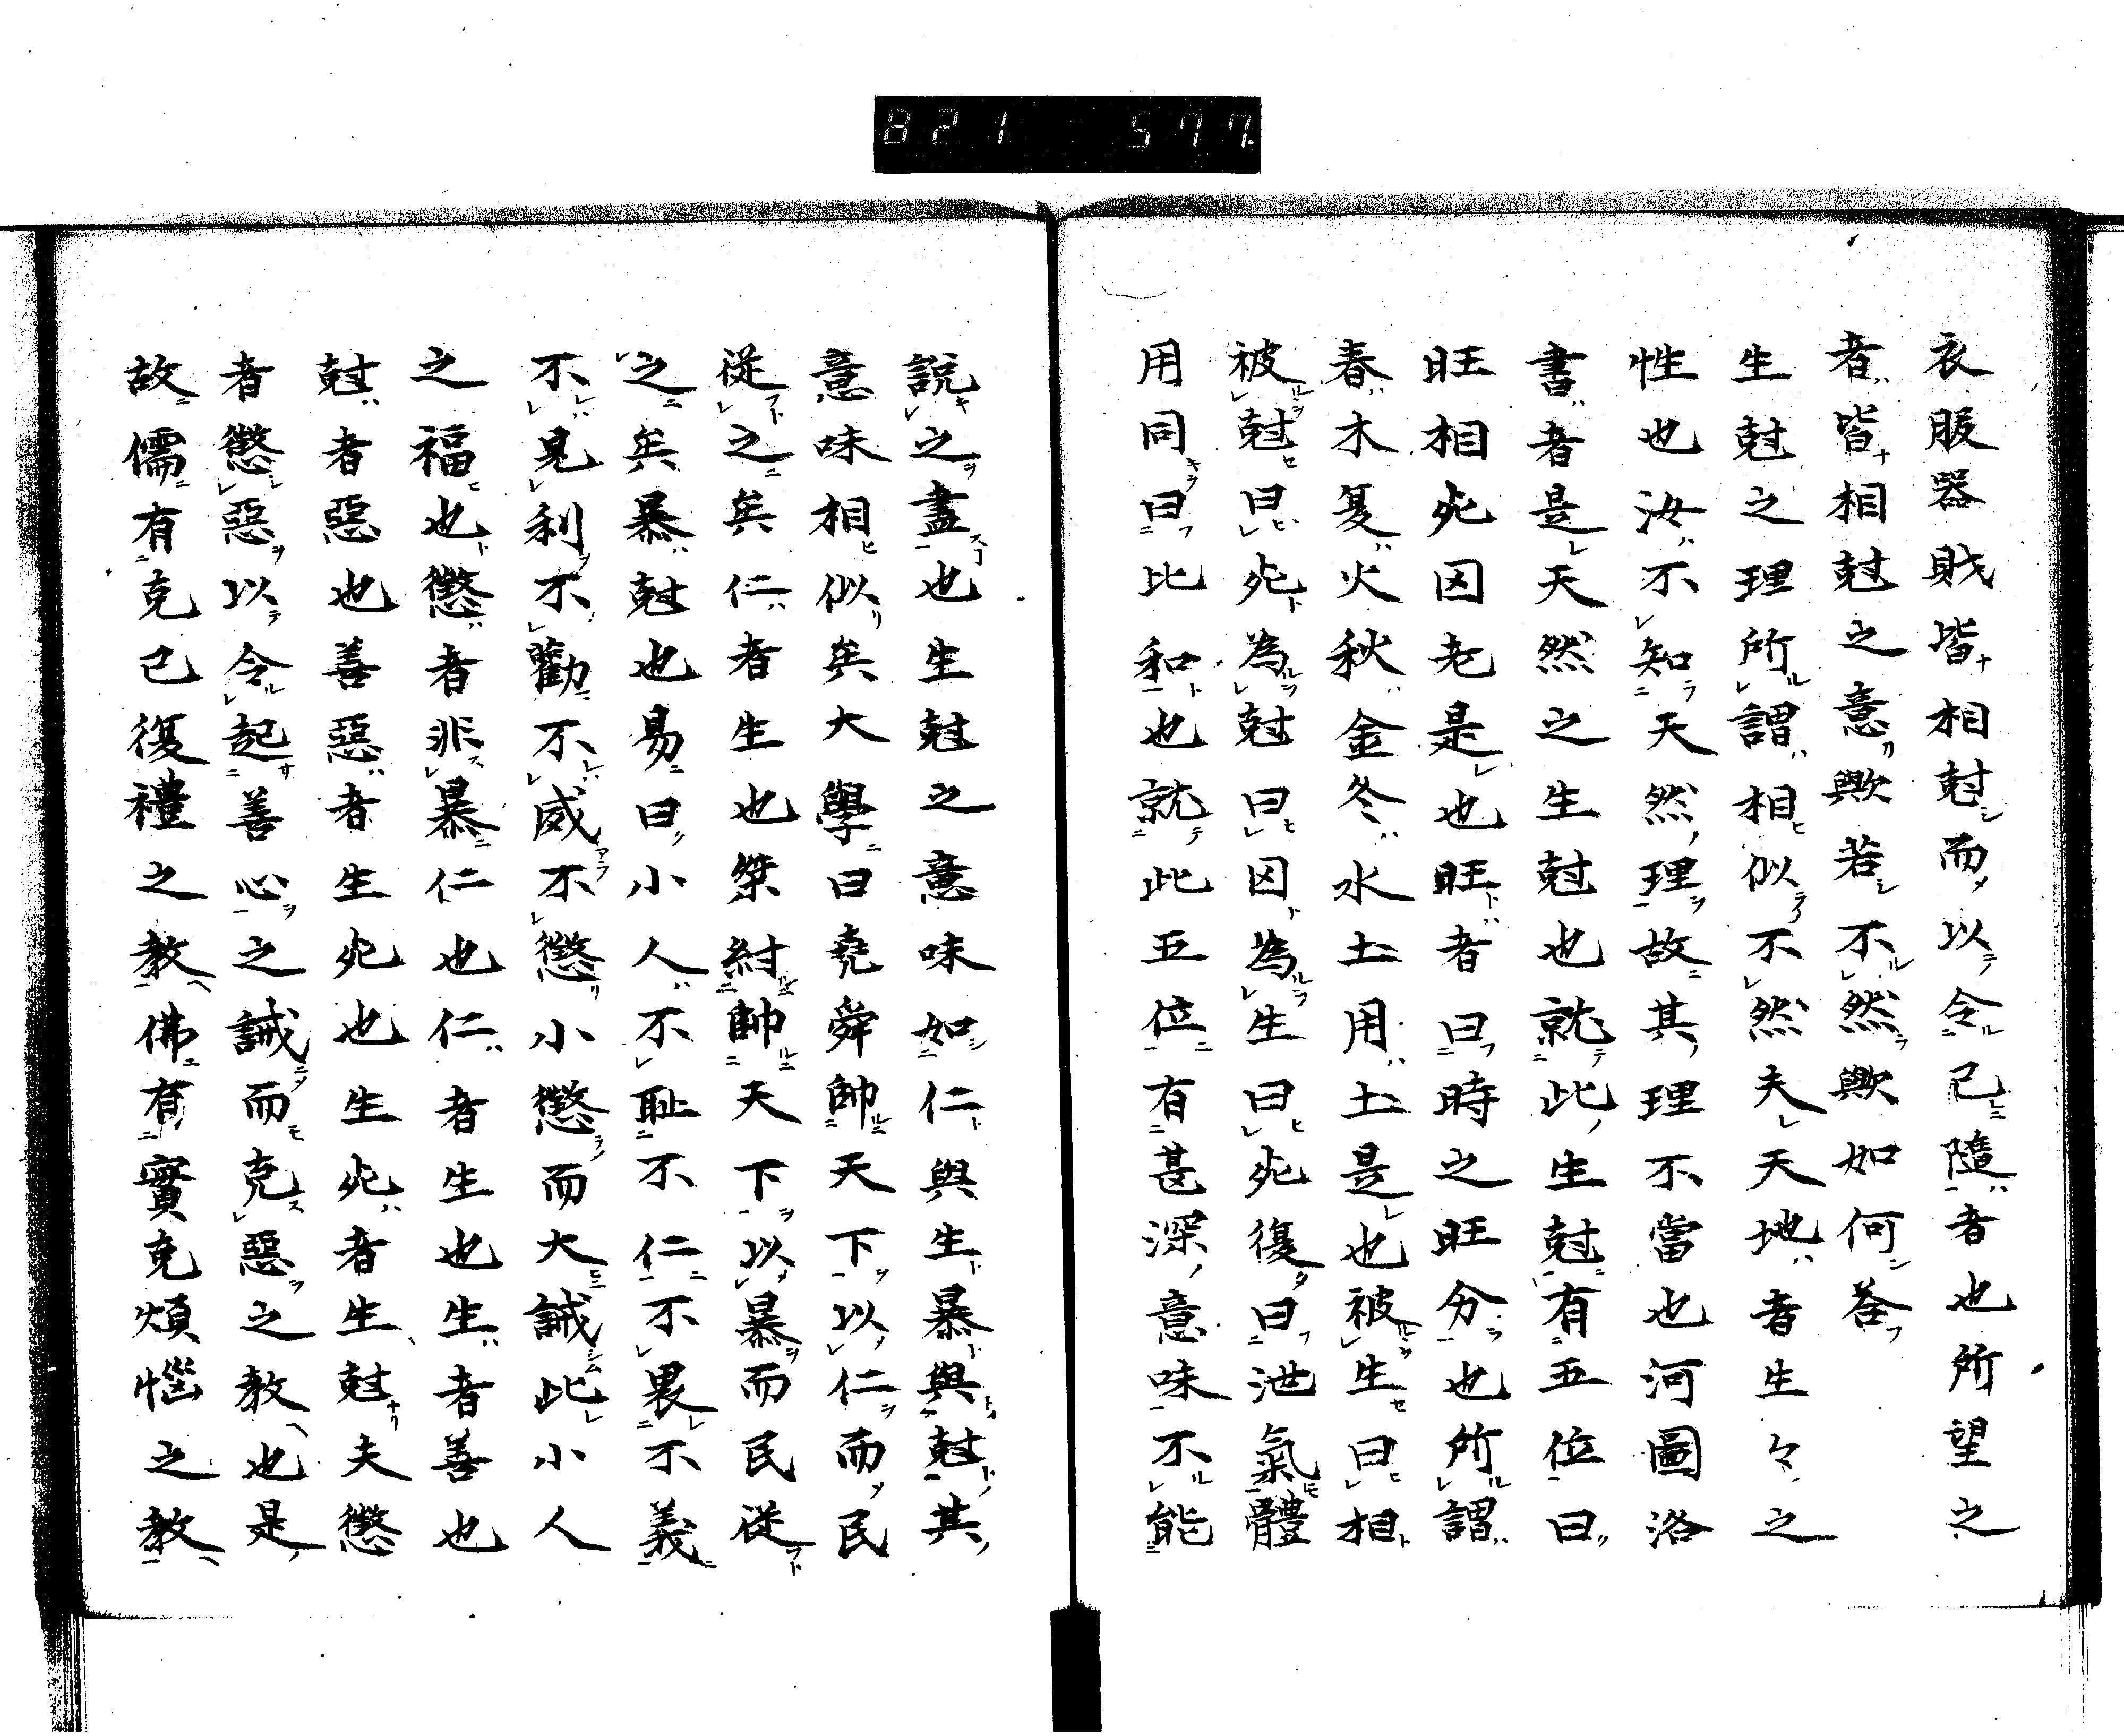 821 577.
衣服器財皆相尅而以令己隨者也所望之
者皆相尅之意歟若不然歟如何荅
生尅之理所謂相似不然夫天地者生々之
性也汝不知天然理故其理不當也河圖洛
書者是天然之生尅也就此生尅有五位曰
旺相死囚老是也旺者曰時之旺分也所謂
春木夏火秋金冬水土用土是也被生曰相
被尅曰死為尅曰囚為生曰死復曰泄氣體
用同曰比和也就此五位有甚深意味不能
説之盡也生尅之意味如仁與生暴與尅其
意味相似矣大學曰堯舜帥天下以仁而民
從之矣仁者生也桀紂帥天下以暴而民從
之矣暴尅也易曰小人不耻不仁不畏不義
不見利不勸不威不懲小懲而大誡此小人
之福也懲者非暴仁也仁者生也生者善也
尅者惡也善惡者生死也生死者生尅夫懲
者懲惡以令起善心之誡而克惡之教也是
故儒有克己復禮之教佛有實克煩惱之教